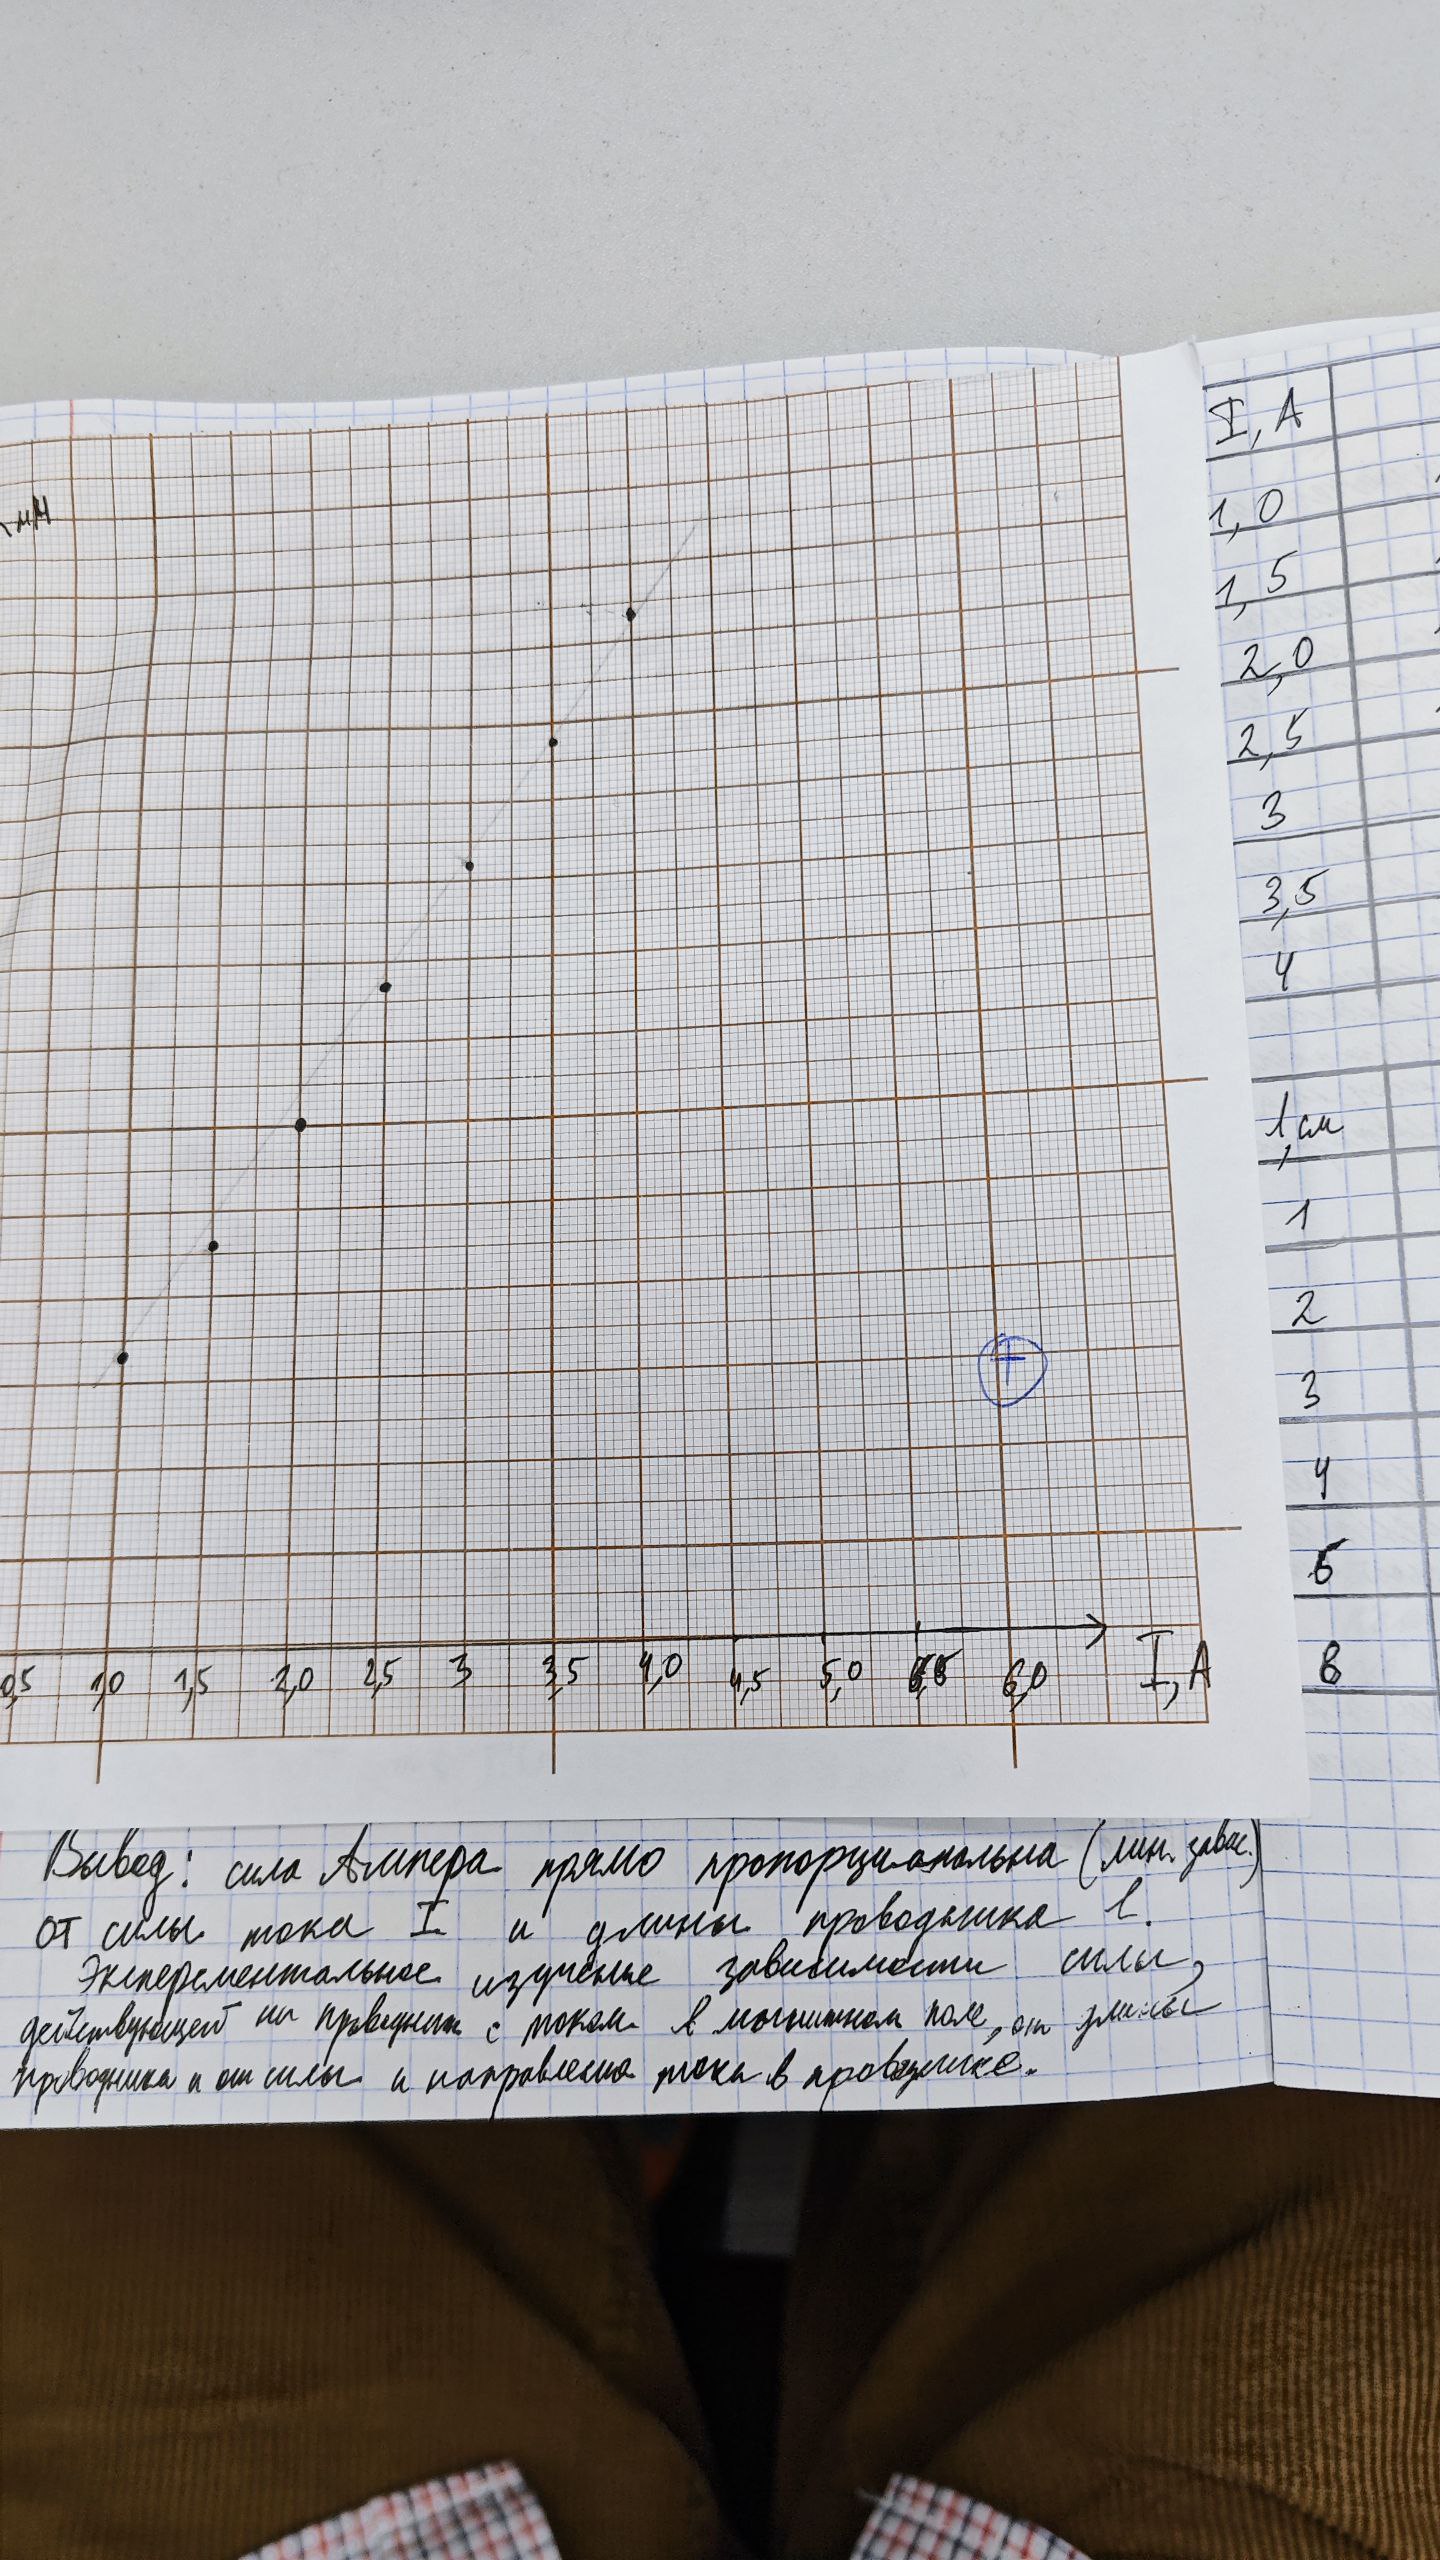 мН
0,5 1,0 1,5 2,0 2,5 3 3,5 4,0 4,5 5,0 6,0 I, A
I, A
1,0
1,5
2,0
2,5
3
3,5
4
l, см
1
2
3
4
5
Вывод: сила Ампера прямо пропорциональна (лин. завис.)
от силы тока I и длины проводника l.
Эксперементальное изучение зависимости силы,
действующей на проводник с током в магнитном поле, от длины
проводника и от силы и направления тока в проводнике.